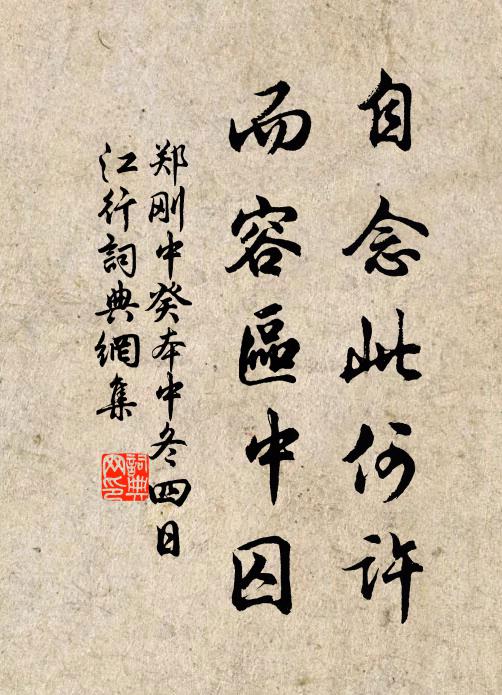 自念此何许
而容區中囚
郑刚中癸夲中冬四日
江行詞典網集
詞典网印